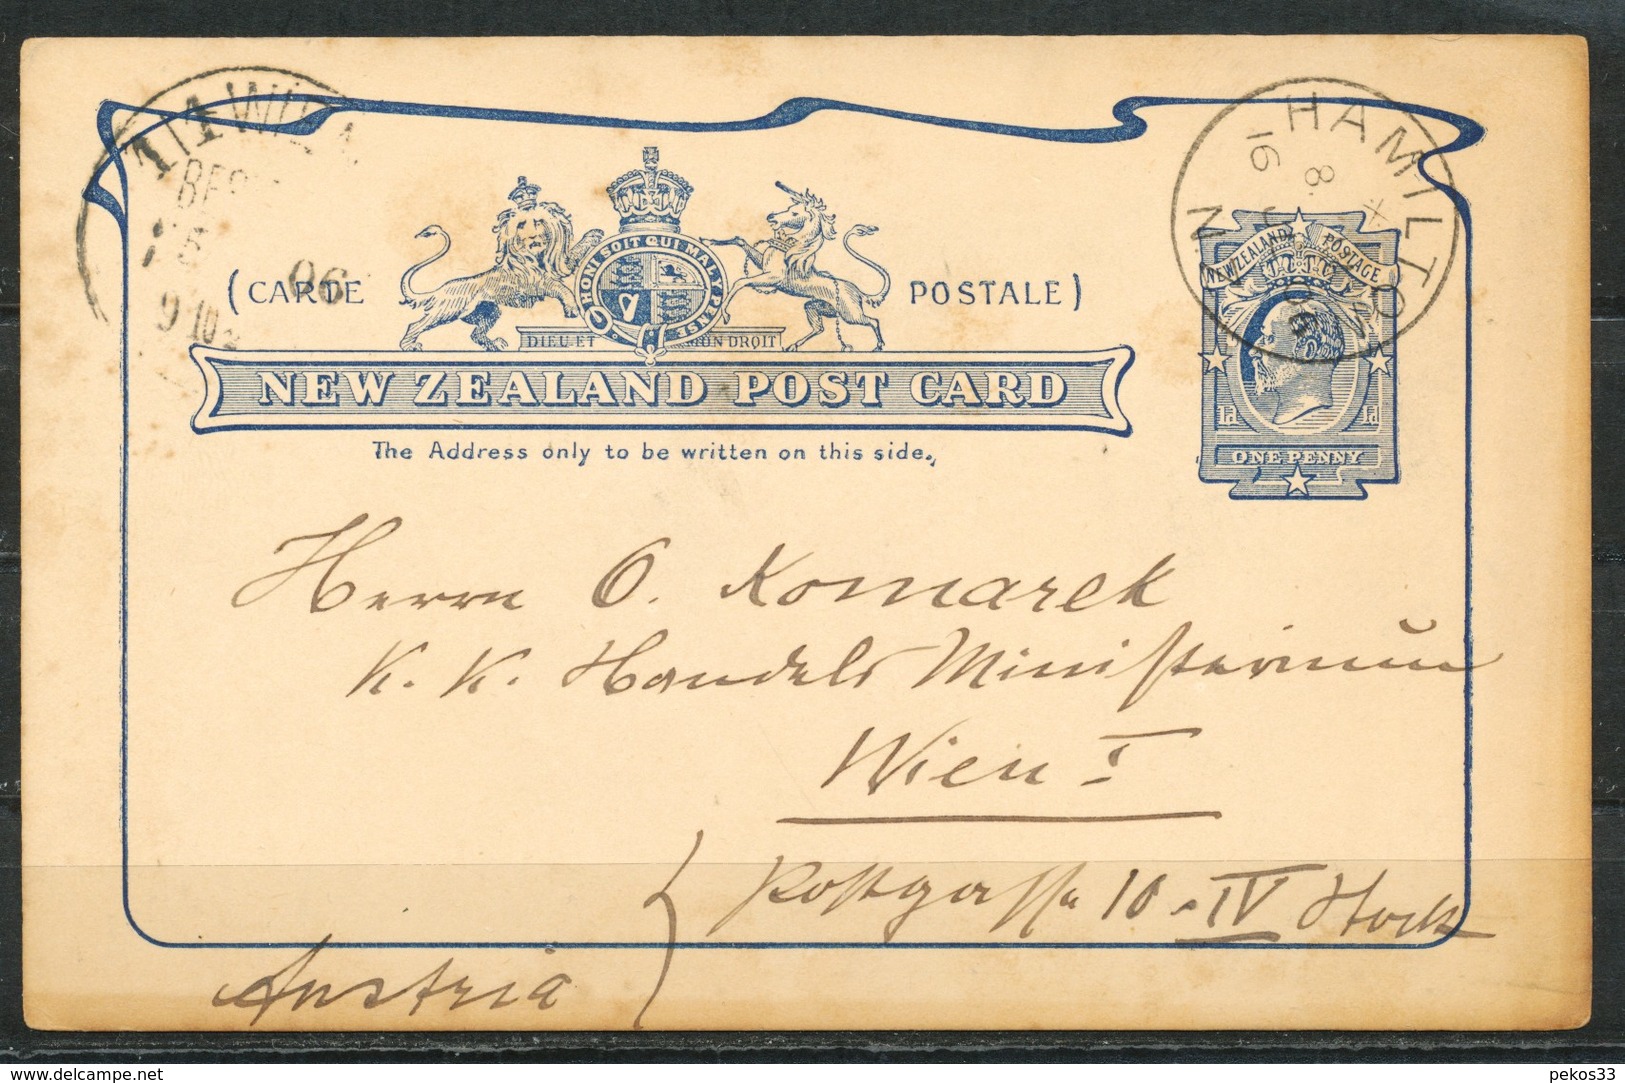 1/1 WIEN
96
9·10
HAMILTON
N.Z
8
16
06
NEW ZEALAND POSTAGE
1d 1d
ONE PENNY
HONI SOIT QUI MAL Y PENSE
(CARTE POSTALE)
DIEU ET MON DROIT
NEW ZEALAND POST CARD
The Address only to be written on this side.
Herrn O. Komarek
K. K. Handels Ministerium
Wien I
Postgasse 10 - IV Stock
Austria
www.delcampe.net
pekos33